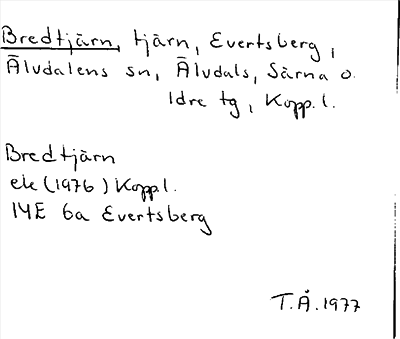 Bredtjärn, tjärn, Evertsberg,
Älvdalens sn, Älvdals, Särna o.
Idre tg, Kopp. l.
Bredtjärn
ek (1976) Kopp l.
14E 6a Evertsberg
T.Å. 1977